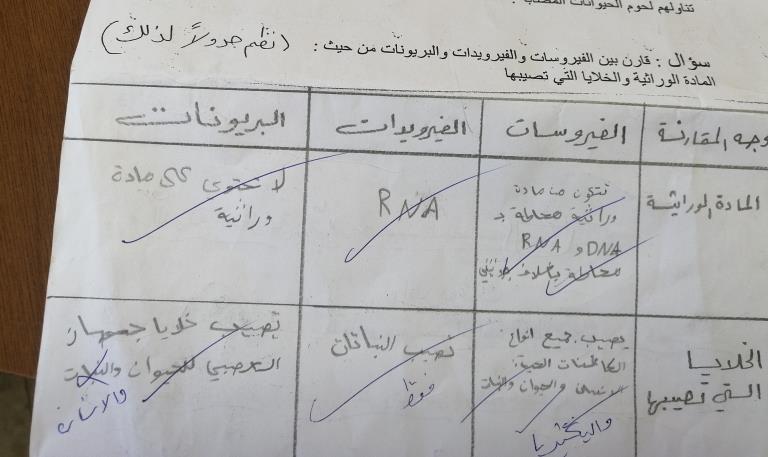 تناولهم لحوم الحيوانات
(نظم جدولاً لذلك)
سؤال : قارن بين الفيروسات والفيرويدات والبريونات من حيث :
المادة الوراثية والخلايا التي تصيبها
وجه المقارنة الفيروسات الفيرويدات البريونات
المادة الوراثية
تتكون من مادة
وراثية محاطة بـ
DNA و RNA
محاطة بغلاف بروتيني
RNA
لا تحتوي على مادة
وراثية
الخلايا
التي تصيبها
يصيب جميع انواع
الكائنات الحية:
الانسان والحيوان والنبات
والبكتيريا
تصيب النباتات
فقط
تصيب خلايا جهاز
العصبي للحيوان
والانسان